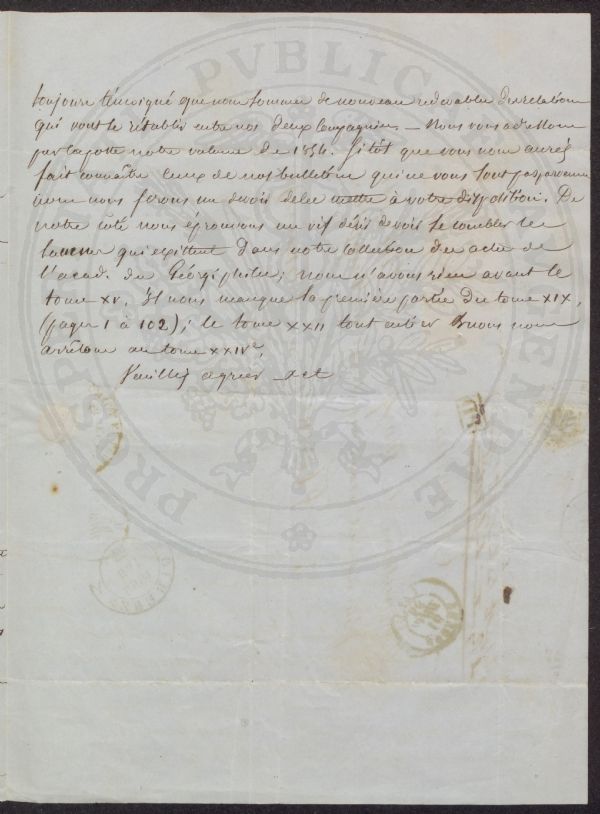 toujours témoigné que nous sommes de nouveau redevables des relations
qui vont se rétablir entre nos deux Compagnies – Nous vous adressons
par la poste notre volume de 1854. Sitôt que vous nous aurés
fait connaître ceux de nos bulletins qui ne vous sont pas parvenus
nous nous ferons un devoir de les mettre à votre disposition. De
notre côté nous éprouvons un vif désir de voir se combler les
lacunes qui existent dans notre Collection des actes de
l'acad. des Géorgiphiles; nous n'avons rien avant le
tome XV. Il nous manque la première partie du tome XIX,
(pages 1 à 102); le tome XXII tout entier & nous nous
arrêtons au tome XXIV.
Veuillés agréer
PROSPERITATI PVBLICAE AVGENDAE